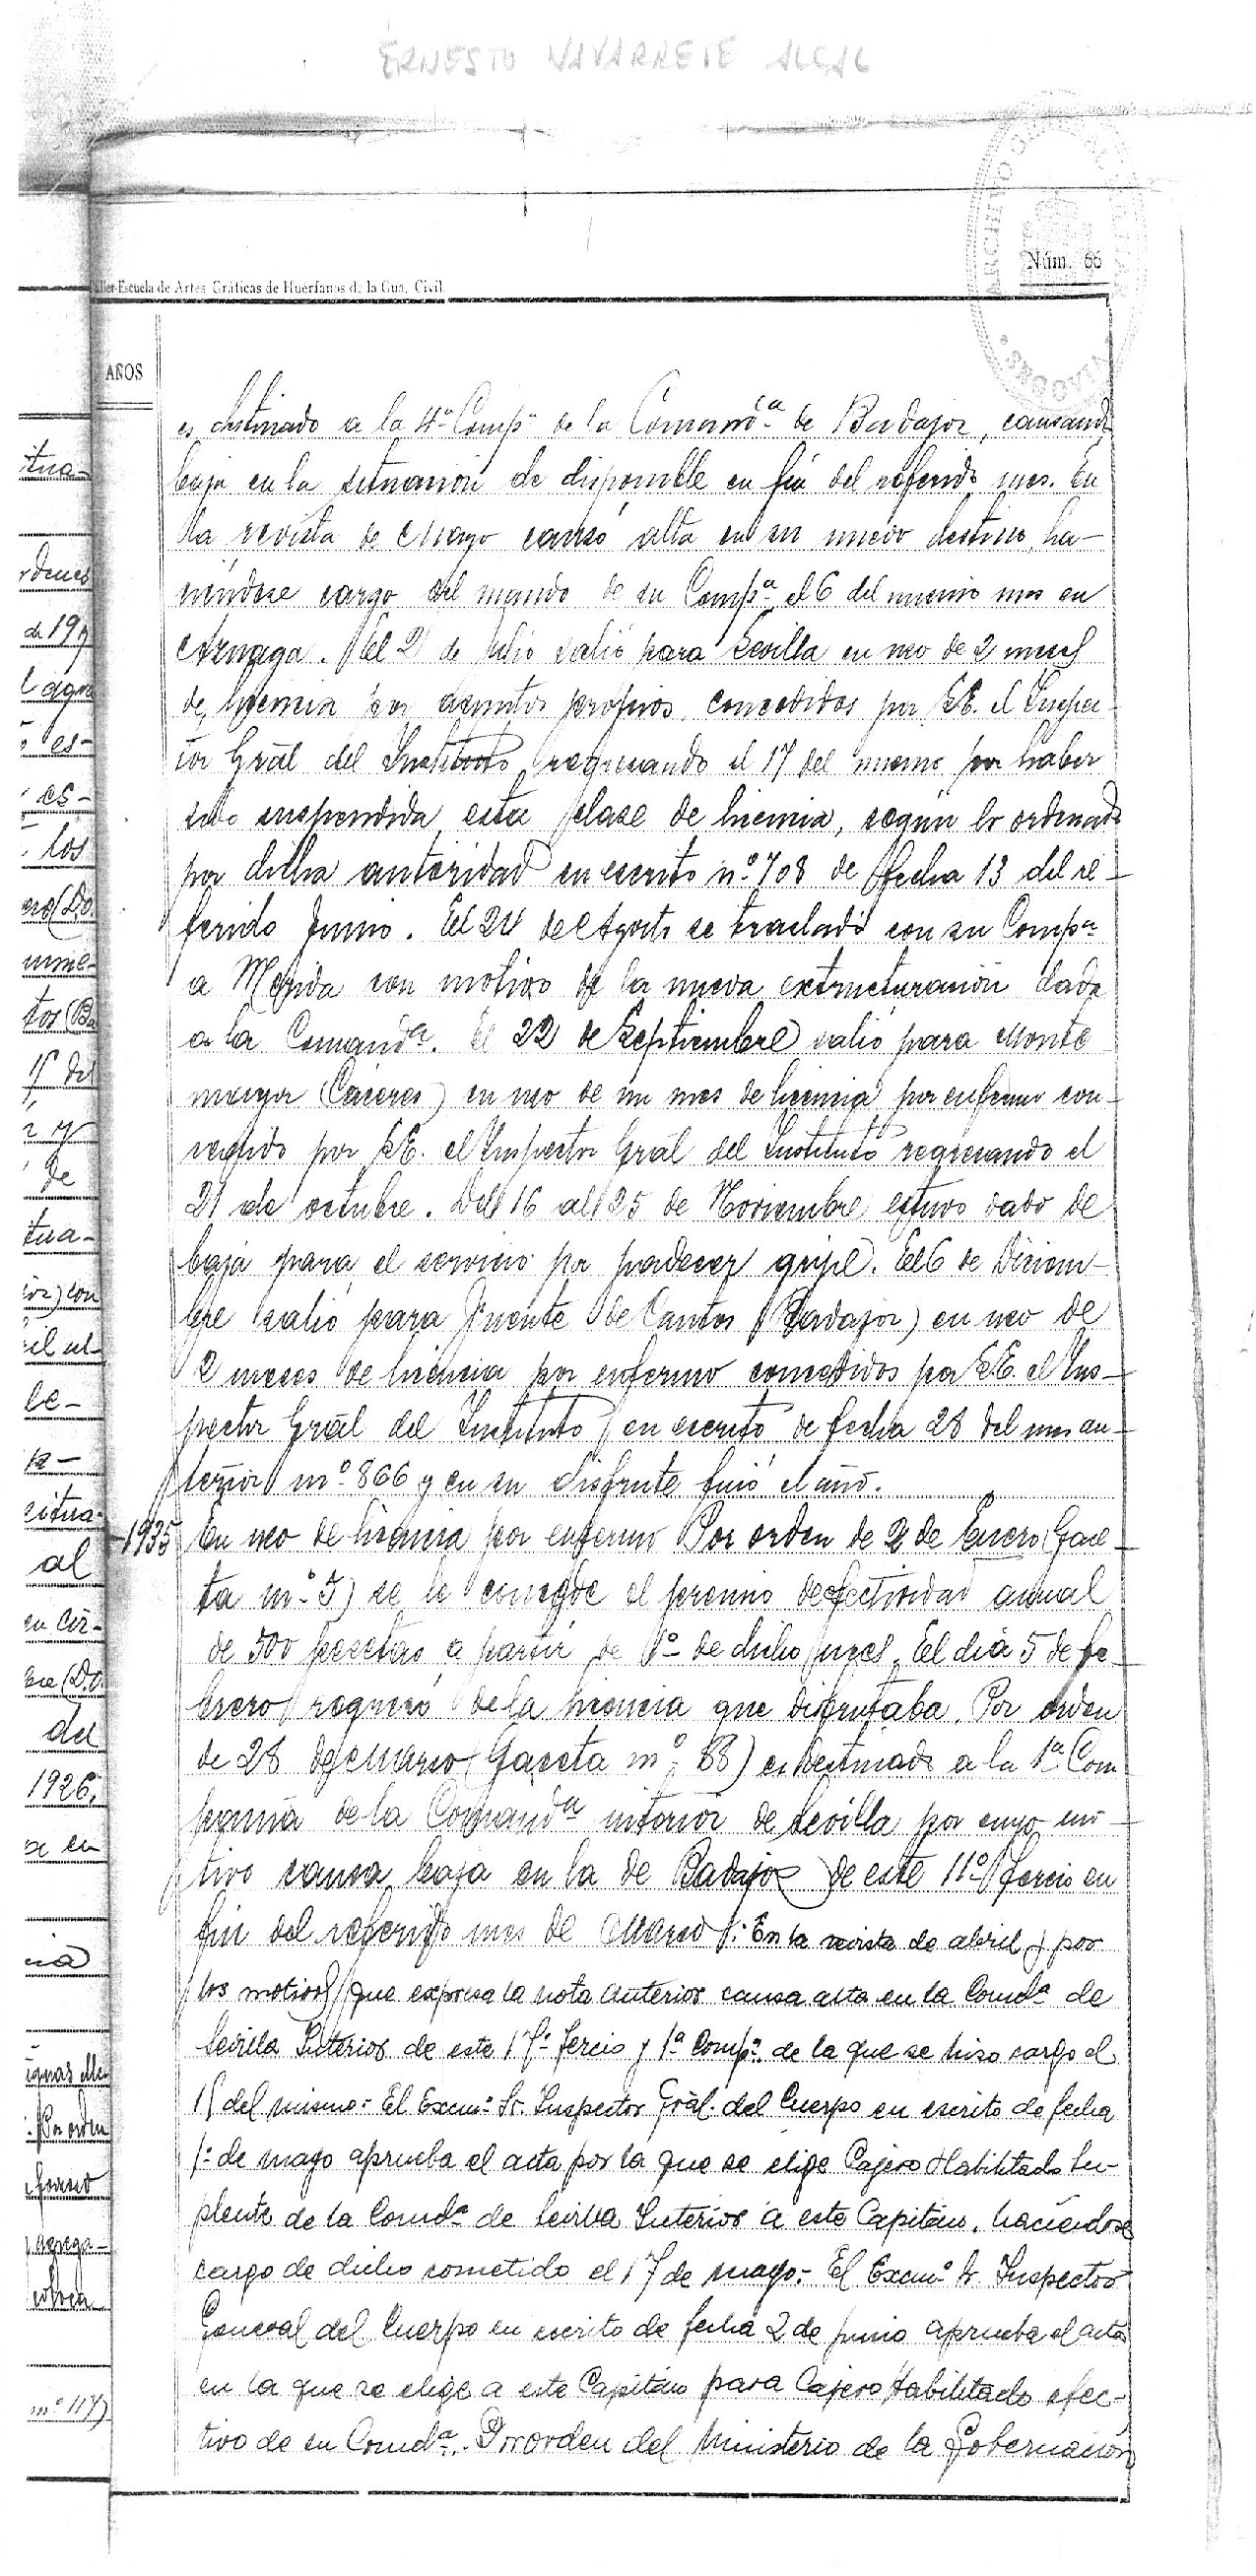 ERNESTO NAVARRETE ALCAL
Núm. 66
ller-Escuela de Artes Gráficas de Huérfanos de la Gua. Civil
AÑOS
es destinado a la 4ª Compª de la Comandª de Badajoz, causando
baja en la situación de disponible en fin del referido mes. En
la revista de Mayo causó alta en su nuevo destino, ha-
ciendose cargo del mando de su Compª el 6 del mismo mes en
Azuaga. El 2 de Julio salió para Sevilla en uso de 2 meses
de licencia por asuntos propios concedidos por S.E. el Inspec-
tor Gral del Instituto regresando el 17 del mismo por haber
sido suspendida esta clase de licencia, según lo ordenado
por dicha autoridad en escrito nº 708 de fecha 13 del re-
ferido Junio. El 24 de Agosto se trasladó con su Compª
a Merida con motivo de la nueva extructuración dada
a la Comandª. El 22 de Septiembre salió para Monte
mayor (Cáceres) en uso de un mes de licencia por enfermo con-
cedido por S.E. el Inspector Gral del Instituto regresando el
21 de octubre. Del 16 al 25 de Noviembre estuvo dado de
baja para el servicio por padecer gripe. El 6 de Diciem-
bre salió para Fuente de Cantos (Badajoz) en uso de
2 meses de licencia por enfermo concedidos por S.E. el Ins-
pector Gral del Instituto en escrito de fecha 28 del mes an-
terior nº 866 y en su disfrute finó el año.
1935 En uso de licencia por enfermo Por orden de 2 de Enero (Gace-
ta nº 5) se le concede el premio de efectividad anual
de 500 pesetas a partir de 1º de dicho mes. El dia 5 de fe-
brero regresó de la licencia que disfrutaba. Por orden
de 28 de Marzo (Gaceta nº 88) es destinado a la 1ª Com
pañia de la Comandª interior de Sevilla por cuyo mo-
tivo causa baja en la de Badajoz de este 11º Tercio en
fin del referido mes de Marzo.- En la revista de abril y por
los motivos que expresa la nota anterior causa alta en la Comdª de
Sevilla Interior de este 17º Tercio y 1ª Compª. de la que se hizo cargo el
11 del mismo.- El Excmº Sr. Inspector Gral. del Cuerpo en escrito de fecha
1º de mayo aprueba el acta por la que se elige Cajero Habilitado Su-
plente de la Comdª de Sevilla Interior a este Capitán, haciendose
cargo de dicho cometido el 17 de mayo.- El Excmº Sr. Inspector
General del Cuerpo en escrito de fecha 2 de junio aprueba el acta
en la que se elige a este Capitán para Cajero Habilitado efec-
tivo de su Comdª. Por orden del Ministerio de la Gobernación